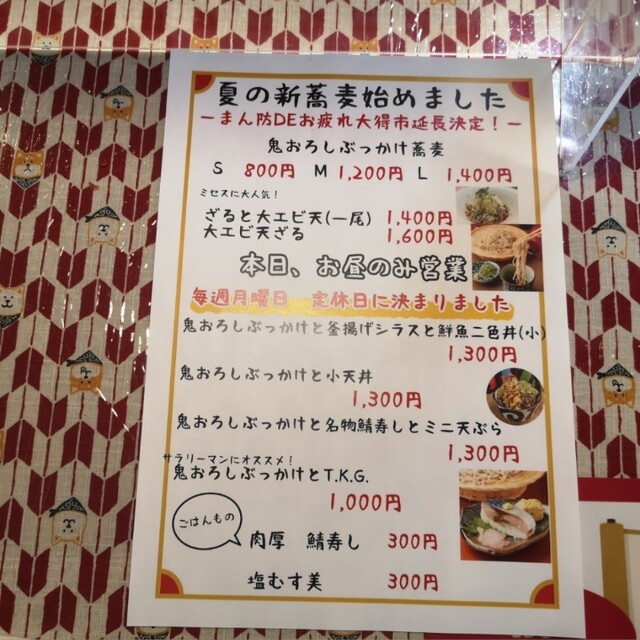 夏の新蕎麦始めました
－まん防DEお疲れ大得市延長決定！－
鬼おろしぶっかけ蕎麦
S 800円 M 1,200円 L 1,400円
ミセスに大人気！
ざると大エビ天(一尾) 1,400円
大エビ天ざる 1,600円
本日、お昼のみ営業
毎週月曜日 定休日に決まりました
鬼おろしぶっかけと釜揚げシラスと鮮魚二色丼(小)
1,300円
鬼おろしぶっかけと小天丼
1,300円
鬼おろしぶっかけと名物鯖寿しとミニ天ぷら
1,300円
サラリーマンにオススメ！
鬼おろしぶっかけとT.K.G.
1,000円
ごはんもの
肉厚 鯖寿し 300円
塩むす美 300円